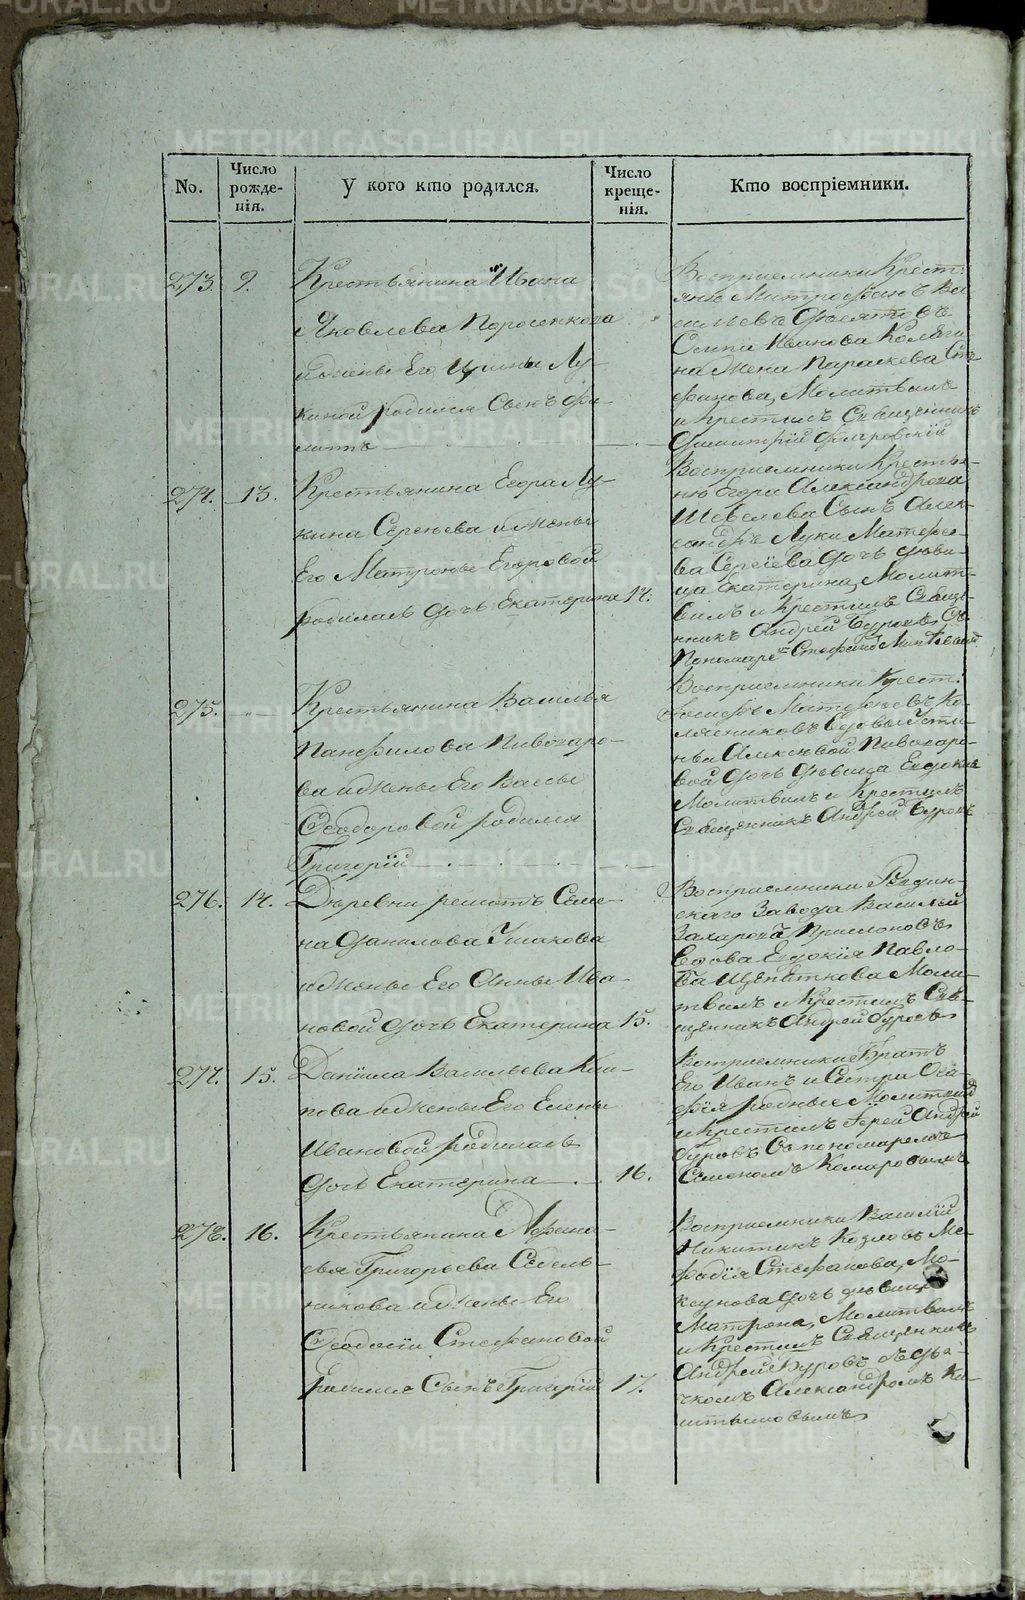 No.
Число рожде-нія.
У кого кто родился.
Число креще-нія.
Кто воспріемники.
273. 9.
Крестьянина Ивана
Яковлева Поросенкова
и жены Его Ирины Лу-
киной родился Сынъ Фи-
липпъ
Восприемники Крест:
янъ Митрофанъ Ва
сильевъ
Осипа Иванова
на жена Параскева Сте
фанова, Молитвилъ
и Крестилъ Священникъ
Димитрий
274. 13.
Крестьянина Егора Лу-
кина Сергеева и жены
Его Матроны Егоровой
родилась дочь Екатерина 14.
Восприемники Крестья-
нъ Егора Александрова
Шевелева Сынъ Алек-
сандръ Луки Матфее-
ва Сергеева дочь деви-
ца Екатерина, Молит-
вилъ и Крестилъ Свяще-
нникъ Андрей Буровъ, Съ
Пономаремъ Стефаномъ
275.
Крестьянина Василья
Панфилова Пивоваро-
ва и жены Его Вассы
Феодоровой родился
Григорий
Восприемники Крест:
вдовы Усти-
ньи Алексевой Пивоваро-
вой дочь девица Евдокия
Молитвилъ и Крестилъ
Священникъ Андрей Буровъ
276. 14.
Деревни решотъ Семе-
на Данилова Ушакова
и жены Его Анны Ива-
новой дочь Екатерина 15.
Восприемники Ревдин-
скаго Завода Василей
Захаровъ
вдова Евдокия Павло-
ва Щепеткова Моли-
твилъ и Крестилъ Свя-
щенникъ Андрей Буровъ
277. 15.
Данiила Васильева Кон-
нова и жены Его Елены
Ивановой родилась
дочь Екатерина 16.
Восприемники Братъ
Его Иванъ и Сестра Ога-
фiя родные Молитвилъ
и Крестилъ Iерей Андрей
Буровъ Съ пономаремъ
Семеномъ Комаровымъ
278. 16.
Крестьянина Афана-
сья Григорьева Седель-
никова и жены Его
Феодосiи Стефановой
родился Сынъ Григорий 17.
Восприемники Василiй
Никитинъ Козловъ Ме-
фодiя Стефанова, Мо-
кеунова дочь девица
Матрона, Молитвилъ
и Крестилъ Священникъ
Андрей Буровъ съ дья-
чкомъ Александромъ Ки-
METRIKI.GASO-URAL.RU